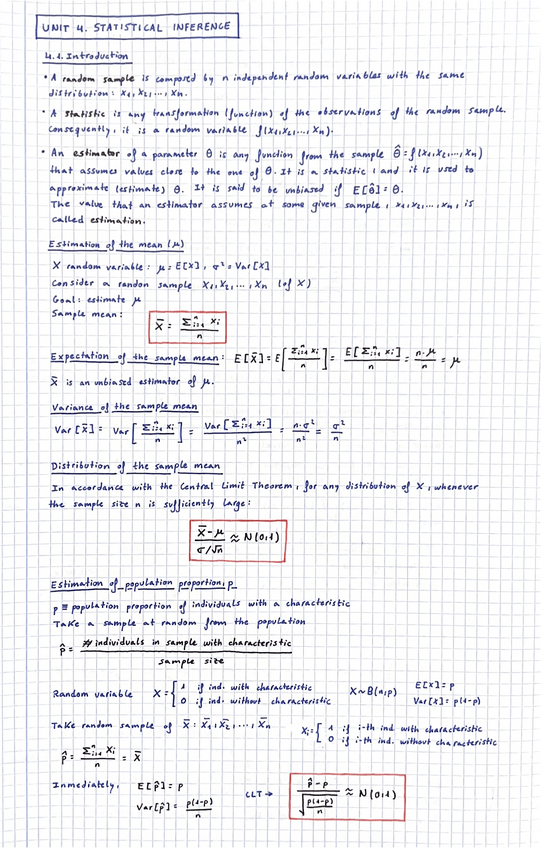 UNIT 4. STATISTICAL INFERENCE
4.1. Introduction
• A random sample is composed by n independent random variables with the same
distribution: X₁, X₂, ..., Xn.
• A statistic is any transformation (function) of the observations of the random sample.
Consequently, it is a random variable f(X₁, X₂, ..., Xn).
• An estimator of a parameter θ is any function from the sample θ̂ = f(X₁, X₂, ..., Xn)
that assumes values close to the one of θ. It is a statistic, and it is used to
approximate (estimate) θ. It is said to be unbiased if E[θ̂] = θ.
The value that an estimator assumes at some given sample, x₁, x₂, ..., xn, is
called estimation.
Estimation of the mean (μ)
X random variable: μ = E[X], σ² = Var[X]
Consider a randon sample X₁, X₂, ..., Xn (of X)
Goal: estimate μ
Sample mean: X̄ = Σᵢ₌₁ⁿ Xi / n
Expectation of the sample mean: E[X̄] = E[Σᵢ₌₁ⁿ Xi / n] = E[Σᵢ₌₁ⁿ Xi] / n = n·μ / n = μ
X̄ is an unbiased estimator of μ.
Variance of the sample mean
Var[X̄] = Var[Σᵢ₌₁ⁿ Xi / n] = Var[Σᵢ₌₁ⁿ Xi] / n² = n·σ² / n² = σ² / n
Distribution of the sample mean
In accordance with the Central Limit Theorem, for any distribution of X, whenever
the sample size n is sufficiently large:
X̄ - μ / σ/√n ≈ N(0,1)
Estimation of population proportion, p
p ≡ population proportion of individuals with a characteristic
Take a sample at random from the population
p̂ = # individuals in sample with characteristic / sample size
Random variable X = { 1 if ind. with characteristic
0 if ind. without characteristic
X ~ B(n,p)
E[X] = p
Var[X] = p(1-p)
Take random sample of X̄: X̄₁, X̄₂, ..., X̄n
Xi = { 1 if i-th ind. with characteristic
0 if i-th ind. without characteristic
p̂ = Σᵢ₌₁ⁿ Xi / n = X̄
Inmediately, E[p̂] = p
Var[p̂] = p(1-p) / n
CLT → p̂ - p / √(p(1-p) / n) ≈ N(0,1)